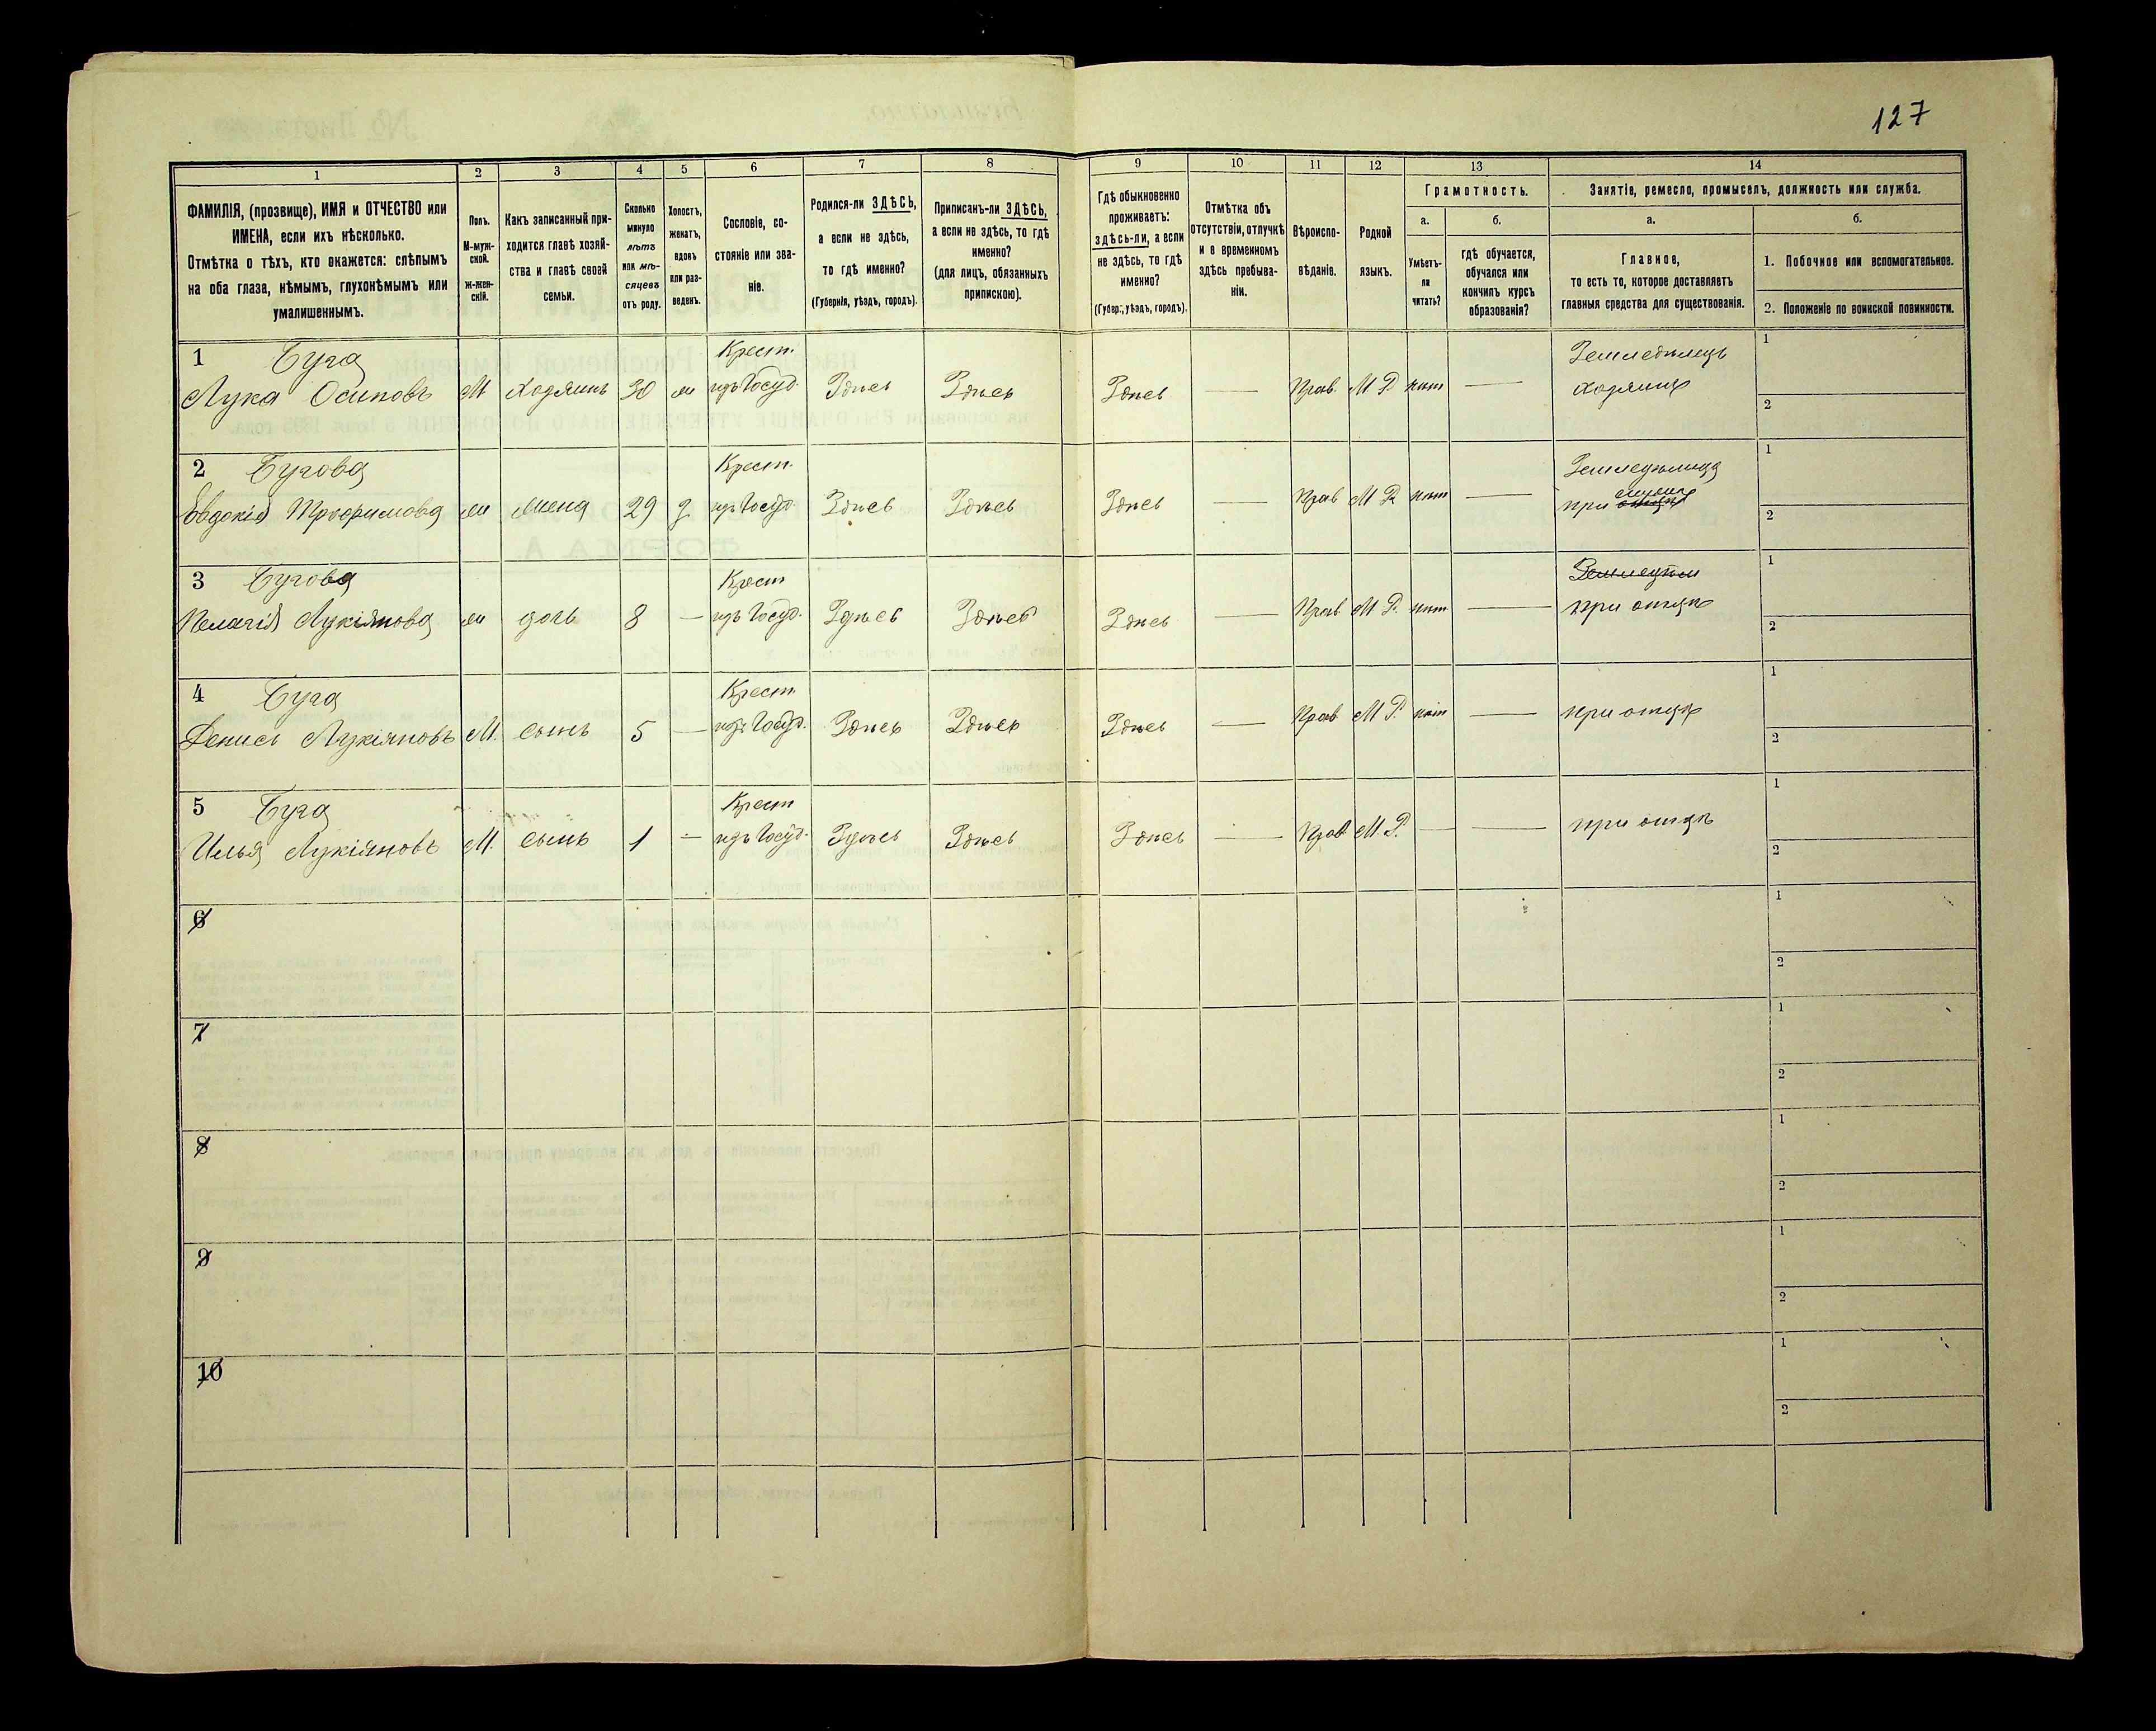 127
1
2
3
4
5
6
7
8
9
10
11
12
13
14
ФАМИЛІЯ, (прозвище), ИМЯ и ОТЧЕСТВО или
ИМЕНА, если ихъ нѣсколько.
Отмѣтка о тѣхъ, кто окажется: слѣпымъ
на оба глаза, нѣмымъ, глухонѣмымъ или
умалишеннымъ.
Полъ.
М-муж-
ской.
Ж-жен-
скій.
Какъ записанный при-
ходится главѣ хозяй-
ства и главѣ своей
семьи.
Сколько
минуло
лѣтъ
или мѣ-
сяцевъ
отъ роду.
Холостъ,
женатъ,
вдовъ
или раз-
веденъ.
Сословіе, со-
стояніе или зва-
ніе.
Родился-ли ЗДѢСЬ,
а если не здѣсь,
то гдѣ именно?
(Губернія, уѣздъ, городъ).
Приписанъ-ли ЗДѢСЬ,
а если не здѣсь, то гдѣ
именно?
(для лицъ, обязанныхъ
припискою).
Гдѣ обыкновенно
проживаетъ:
здѣсь-ли, а если
не здѣсь, то гдѣ
именно?
(Губер., уѣздъ, городъ).
Отмѣтка объ
отсутствіи, отлучкѣ
и о временномъ
здѣсь пребыва-
ніи.
Вѣроиспо-
вѣданіе.
Родной
языкъ.
Грамотность.
а.
Умѣетъ-
ли
читать?
б.
гдѣ обучается,
обучался или
кончилъ курсъ
образованія?
Занятіе, ремесло, промыселъ, должность или служба.
а.
Главное,
то есть то, которое доставляетъ
главныя средства для существованія.
б.
1. Побочное или вспомогательное.
2. Положеніе по воинской повинности.
1 Буга Крест. Земледѣлецъ 1
Лука Осиповъ М Хозяинъ 30 ж изъ Госуд. Здѣсь Здѣсь Здѣсь — Прав. М Р. нѣт — хозяинъ 2
2 Бугова Крест. Земледѣлица 1
Евдокія Трофимова ж жена 29 з изъ Госуд. Здѣсь Здѣсь Здѣсь — Прав М Р. нѣт — при мужѣ 2
3 Бугова Крест Земледѣл 1
Пелагія Лукіянова ж дочь 8 — изъ Госуд. Здѣсь Здѣсь Здѣсь — Прав М Р. нѣт — при отцѣ 2
4 Буга Крест. 1
Денисъ Лукіяновъ М. сынъ 5 — изъ Госуд. Здѣсь Здѣсь Здѣсь — Прав М Р. нѣт — при отцѣ 2
5 Буга Крест 1
Илья Лукіяновъ М. сынъ 1 — изъ Госуд. Здѣсь Здѣсь Здѣсь — Прав М Р. — — при отцѣ 2
6 1
2
7 1
2
8 1
2
9 1
2
10 1
2